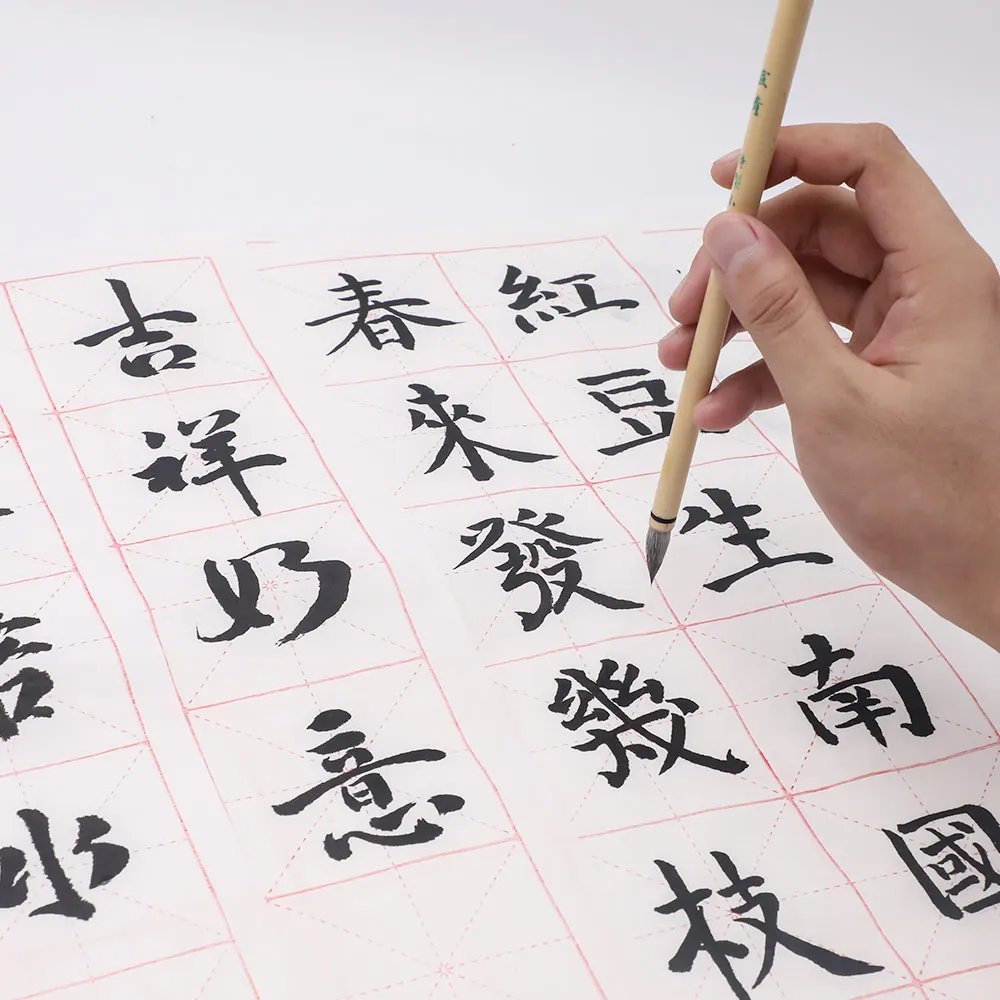 紅豆生南國
春來發幾枝
吉祥如意
水